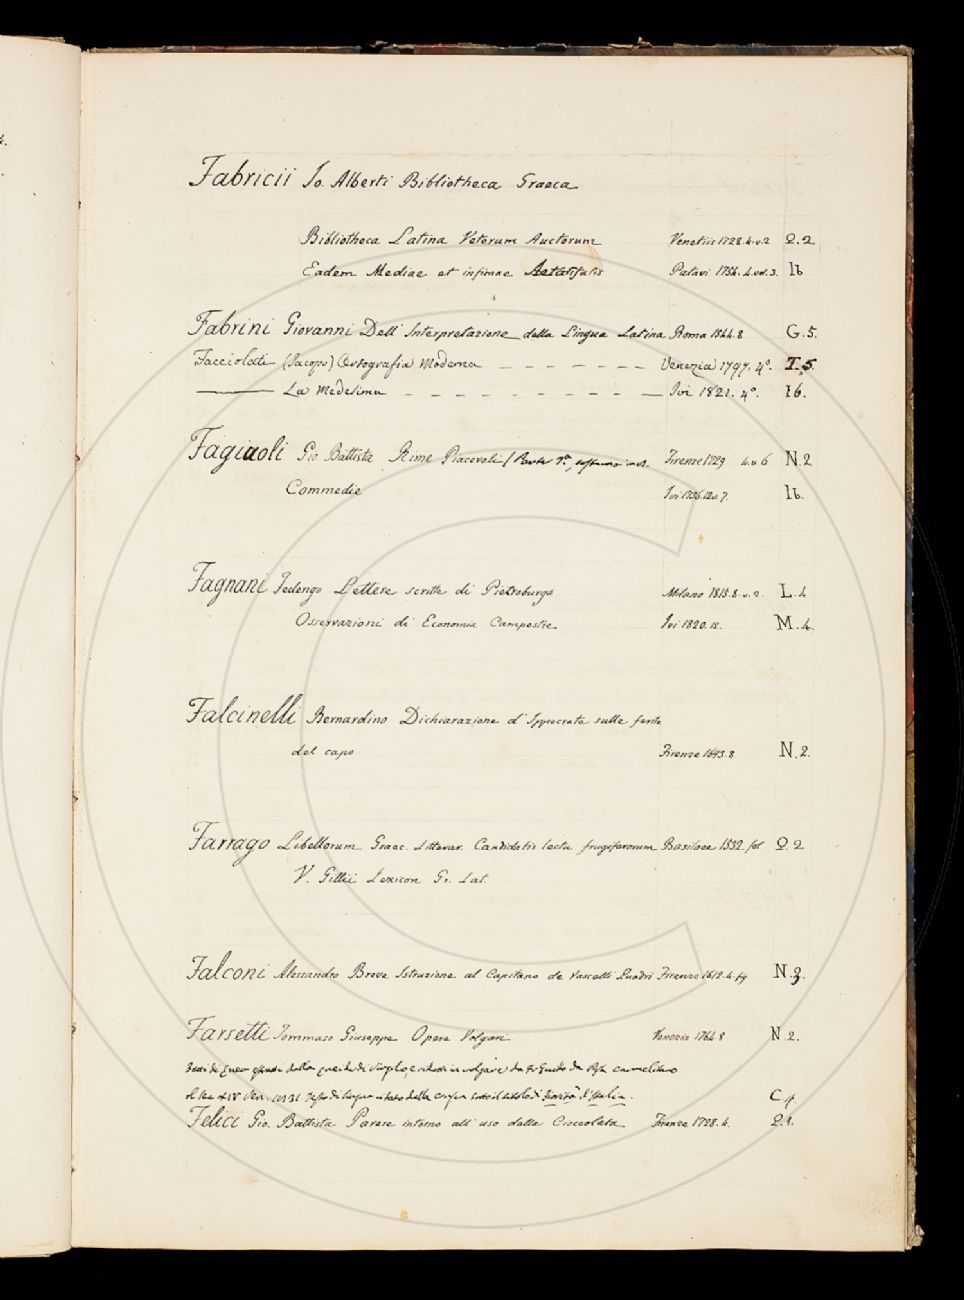 Fabricii Jo. Alberti Bibliotheca Graeca
Bibliotheca Latina Veterum Auctorum Venetiis 1728. 4. v. 2 Q. 2
Eadem Mediae et infimae Aetatis Patavi 1754. 4. vol. 3. Ib
Fabrini Giovanni Dell' Interpretazione della Lingua Latina Roma 1544. 8 G. 5.
Facciolati (Jacopo) Ortografia Moderna – – – – – – Venezia 1797. 4º. T. 5.
—— La Medesima – – – – – – – – – – – Ivi 1821. 4º. Ib.
Fagiuoli Gio. Battista Rime Piacevoli Firenze 1729 4. v. 6 N. 2
Commedie Ivi 1736. 12. v. 7. Ib.
Fagnani Federigo Lettere scritte di Pietroburgo Milano 1815. 8. v. 2. L. 4
Osservazioni di Economia Campestre Ivi 1820. 12. M. 4.
Falcinelli Bernardino Dichiarazione d'Ippocrate sulle ferite
del capo Firenze 1693. 8 N. 2.
Farrago Libellorum Graec. Litterar. Candidatis lectu frugiferorum Basileae 1532. fol Q. 2
V. Gillii Lexicon Gr. Lat.
Falconi Alessandro Breve Istruzione al Capitano de Vascelli Quadri Firenze 1612. 4. fig N. 3.
Farsetti Tommaso Giuseppe Opere Volgari Venezia 1764. 8 N. 2.
Fatti di Enea volgare da Fr Guido da Pisa carmelitano
Testo di lingua citato dalla Crusca sotto il titolo di Fiorità d'Italia. C 4.
Felici Gio. Battista Parere intorno all' uso della Cioccolata Firenze 1728. 4. Q. 1.